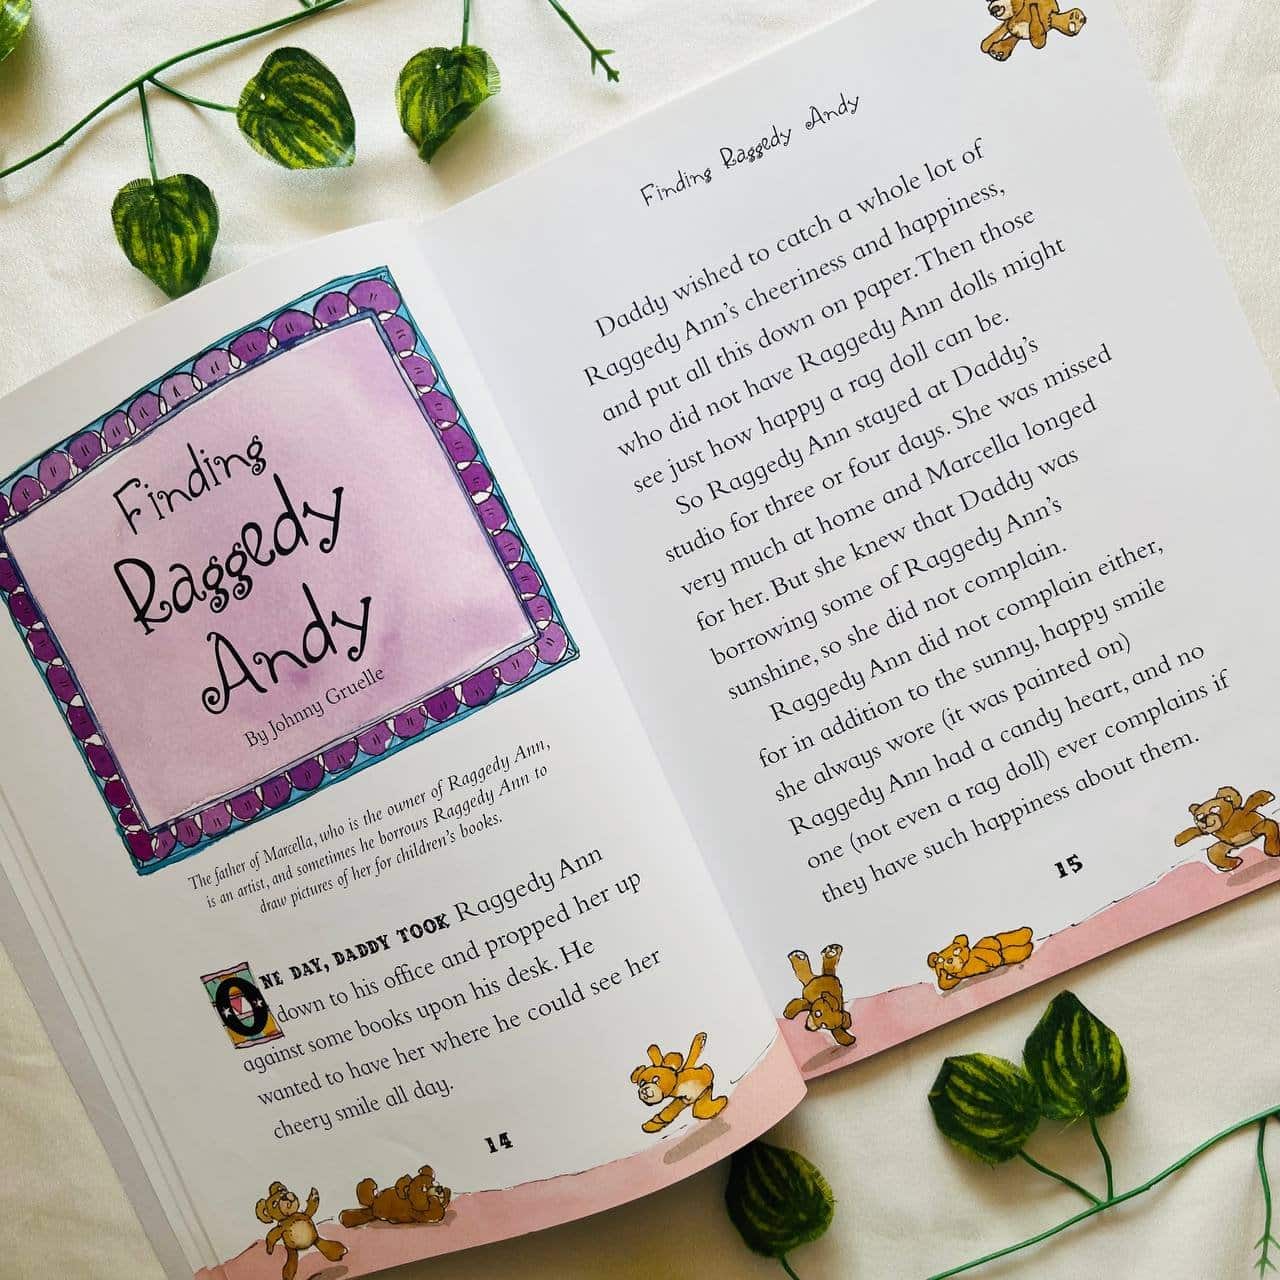 Finding
Raggedy
Andy
By Johnny Gruelle
The father of Marcella, who is the owner of Raggedy Ann,
is an artist, and sometimes he borrows Raggedy Ann to
draw pictures of her for children's books.
ONE DAY, DADDY TOOK Raggedy Ann
down to his office and propped her up
against some books upon his desk. He
wanted to have her where he could see her
cheery smile all day.
14
Finding Raggedy Andy
Daddy wished to catch a whole lot of
Raggedy Ann's cheeriness and happiness,
and put all this down on paper. Then those
who did not have Raggedy Ann dolls might
see just how happy a rag doll can be.
So Raggedy Ann stayed at Daddy's
studio for three or four days. She was missed
very much at home and Marcella longed
for her. But she knew that Daddy was
borrowing some of Raggedy Ann's
sunshine, so she did not complain.
Raggedy Ann did not complain either,
for in addition to the sunny, happy smile
she always wore (it was painted on)
Raggedy Ann had a candy heart, and no
one (not even a rag doll) ever complains if
they have such happiness about them.
15